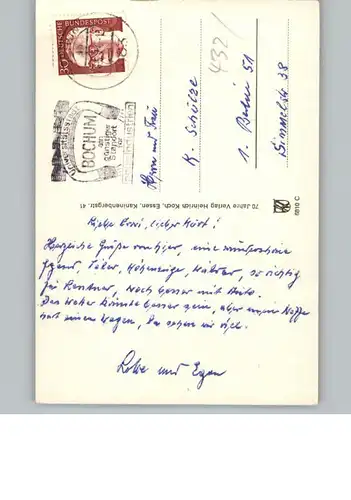 DEUTSCHE BUNDESPOST
30
BOCHUM
der
günstige
Standort
für
432/
Herrn und Frau
K. Schütze
1. Berlin 51
Simmelstr 38
70 Jahre Verlag Heinrich Koch, Essen, Kaninenbergstr. 41
6810 C
Liebe Erni, lieber Kurt!
Herzliche Grüße von hier, eine wunderschöne
Gegend, Täler, Höhenzüge, Wälder, so richtig
für Rentner, noch besser mit Auto.
Das Wetter könnte besser sein, aber unser Neffe
hat einen Wagen, da sehen wir viel.
und Egon